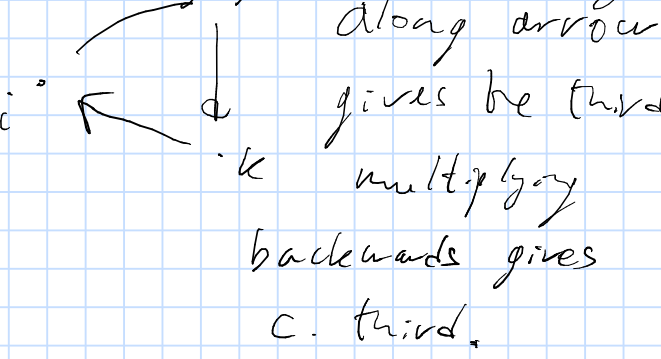 along arrow
i gives be third
k multiplying
backwards gives
c. third.